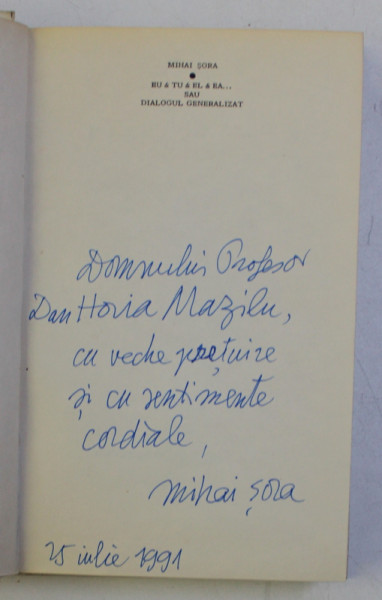 MIHAI ȘORA
●
EU & TU & EL & EA...
SAU
DIALOGUL GENERALIZAT
Domnului Profesor
Dan Horia Mazilu,
cu veche prețuire
și cu sentimente
cordiale,
Mihai Șora
25 iulie 1991